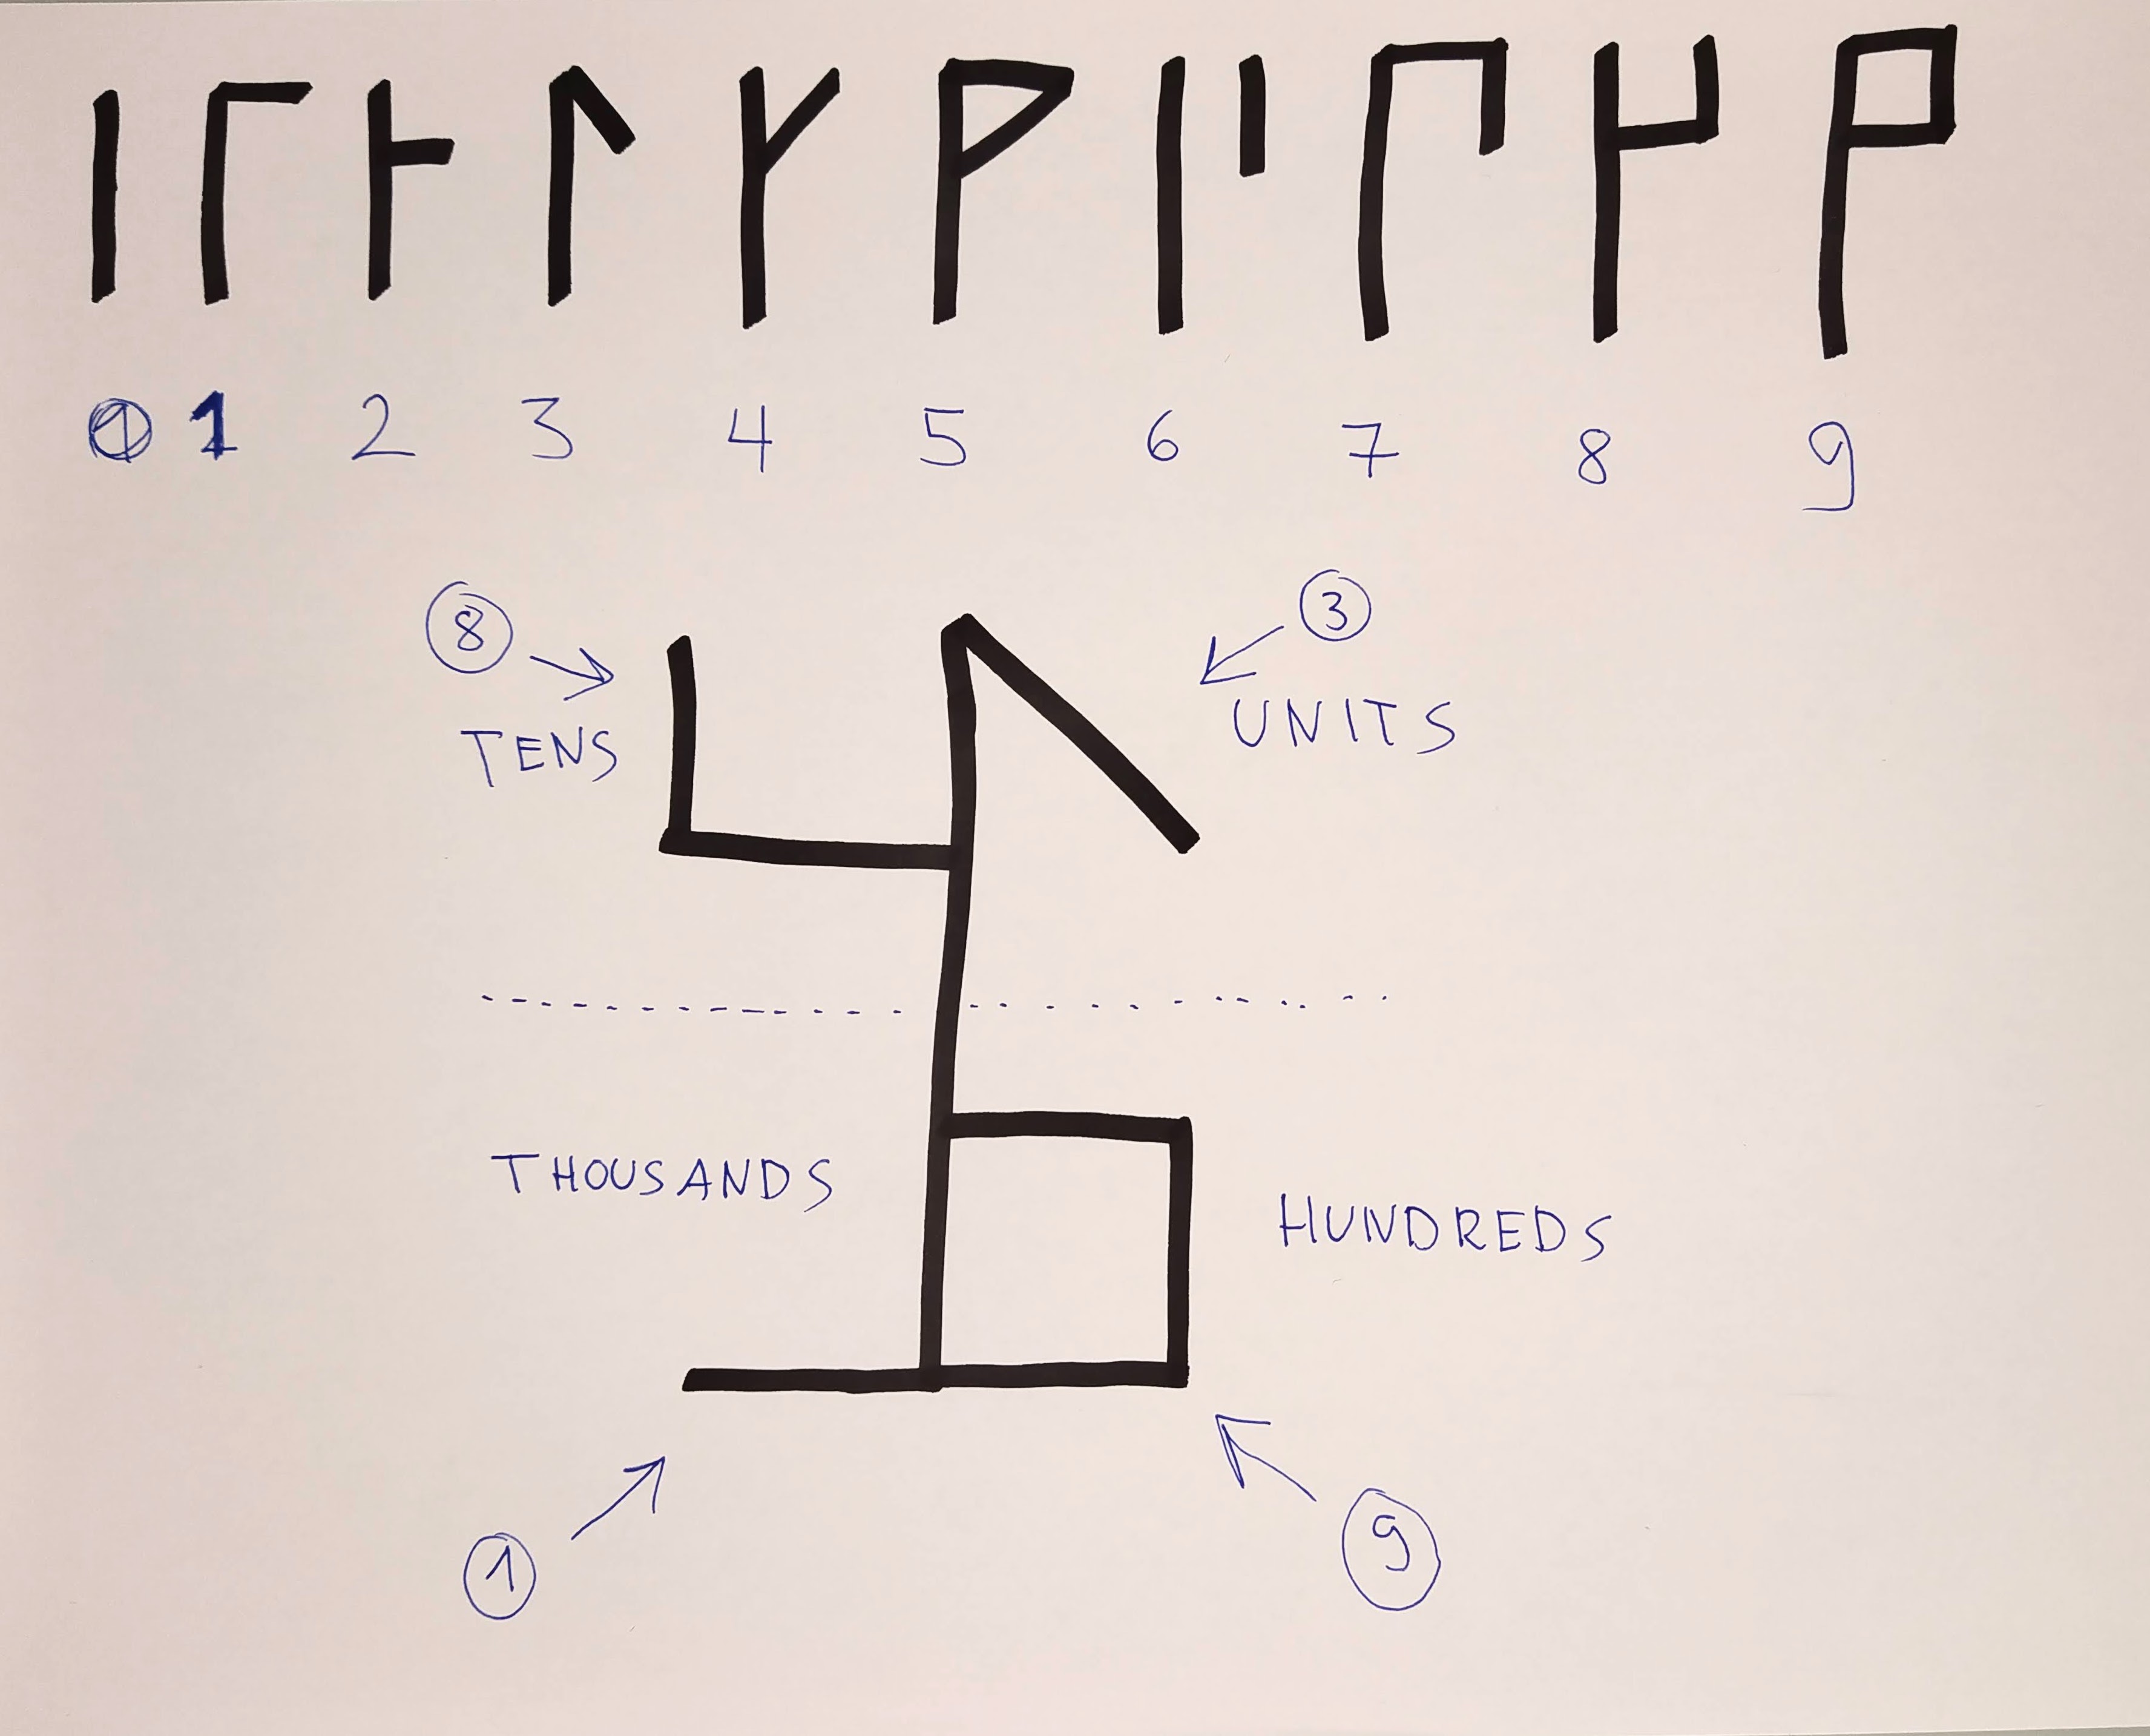 1 2 3 4 5 6 7 8 9
8 3
TENS UNITS
THOUSANDS HUNDREDS
1 9